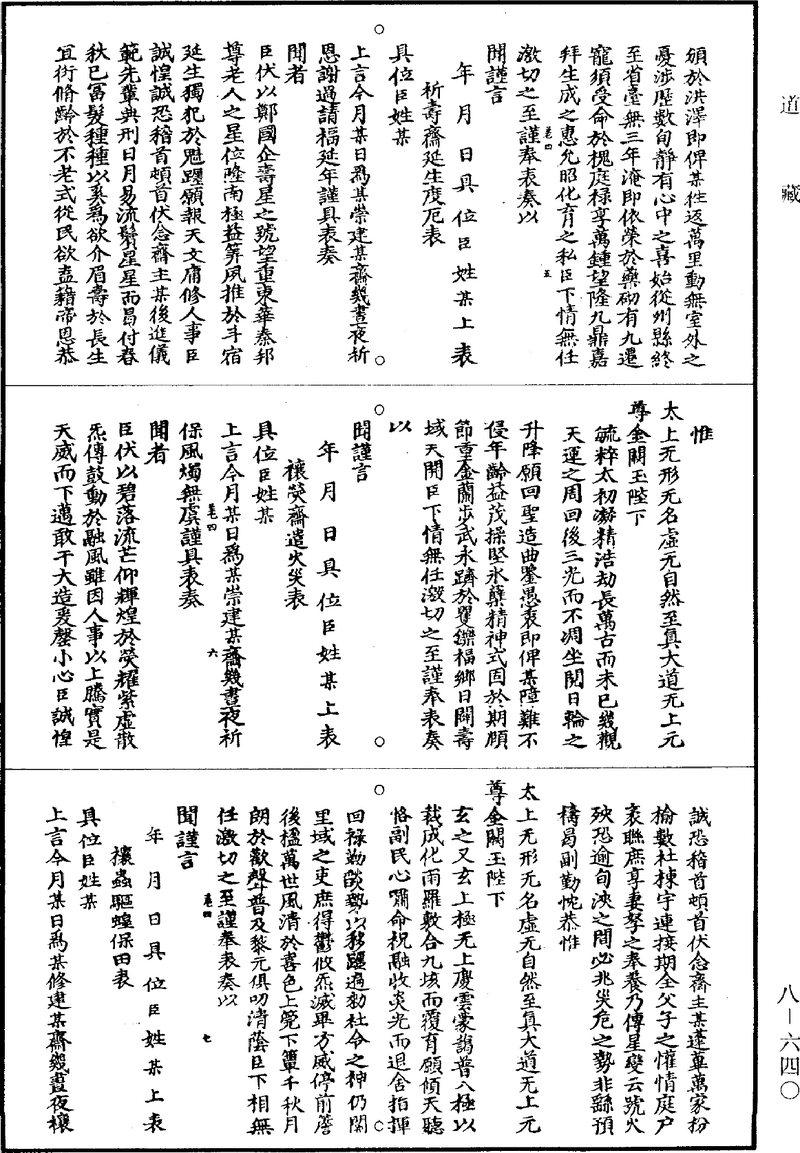 道藏
八－六四〇
頒於洪澤即俾某往返萬里動無室外之
憂涉歷數旬靜有心中之喜始從州縣終
至省臺無三年淹即依榮於藥砌有九遷
寵須受命於槐庭祿享萬鍾望隆九鼎嘉
拜生成之惠允昭化育之私臣下情無任
激切之至謹奉表奏以
卷四
五
聞謹言
年月日具位臣姓某上表
祈壽齋延生度厄表
具位臣姓某
上言今月某日為某崇建某齋幾晝夜祈
恩謝過請福延年謹具表奏
聞者
臣伏以鄭國企壽星之號望重東華秦邦
尊老人之星位隆南極益筭夙推於斗宿
延生獨犯於魁躔願報天文庸修人事臣
誠惶誠恐稽首頓首伏念齋主某後進儀
範先輩典刑日月易流鬢星星而曷付春
秋已富髮種種以奚為欲介眉壽於長生
宜衍脩齡於不老式從民欲盍藉帝恩恭
惟
太上无形无名虛无自然至真大道无上元
尊金闕玉陛下
毓粹太初凝精浩劫長萬古而未已幾觀
天運之周回後三光而不凋坐閱日輪之
升降願回聖造曲鑒愚衷即俾某障難不
侵年齡益茂操堅氷蘖精神式固於期頤
節重金蘭步武永躋於矍鑠福鄉日闢壽
域天開臣下情無任激切之至謹奉表奏
以
聞謹言
年月日具位臣姓某上表
禳熒齋遣火災表
具位臣姓某
上言今月某日為某崇建某齋幾晝夜祈
保風燭無虞謹具表奏
卷四
六
聞者
臣伏以碧落流芒仰輝煌於熒耀紫虛散
炁傳鼓動於融風雖因人事以上騰實是
天威而下邁敢干大造爰罄小心臣誠惶
誠恐稽首頓首伏念齋主某蓬蓽萬家枌
榆數社棟宇連接期全父子之懽情庭户
袤聯庶享妻孥之奉養乃傳星變云號火
殃恐逾旬浹之間必兆災危之勢非繇預
禱曷副勤悃恭惟
太上无形无名虛无自然至真大道无上元
尊金闕玉陛下
玄之又玄上極无上慶雲靉靄普八極以
裁成化雨羅敷合九垓而覆育願傾天聽
恪副民心嘱命祝融收炎光而退舍指揮
回祿勅燄勢以移躔過勅社令之神仍關
里域之吏庶得鬱攸炁滅畢方威停前簷
後楹萬世風清於喜色上筦下簟千秋月
朗於歡聲普及黎元俱叨清蔭臣下相無
任激切之至謹奉表奏以
卷四
七
聞謹言
年月日具位臣姓某上表
攘蟲驅蝗保田表
具位臣姓某
上言今月某日為某修建某齋幾晝夜禳